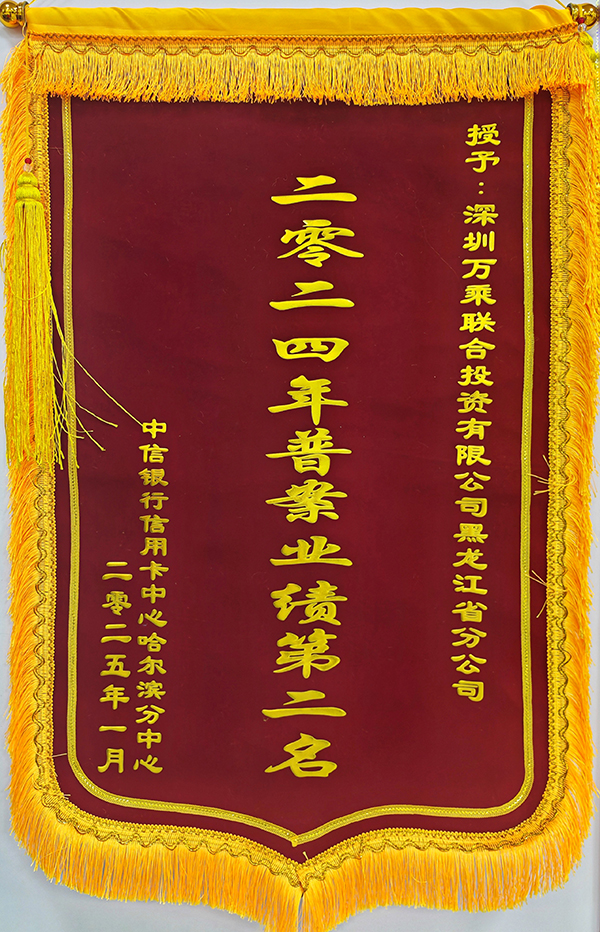 授予：深圳万乘联合投资有限公司黑龙江省分公司
二零二四年普案业绩第二名
中信银行信用卡中心哈尔滨分中心
二零二五年一月